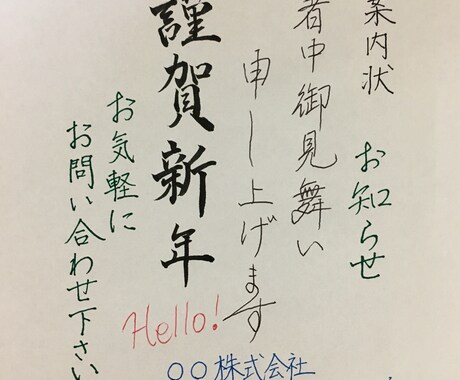 案内状
お知らせ
中御見舞い
申し上げます
謹賀新年
お気軽に
お問い合わせ下さい
Hello!
○○株式会社